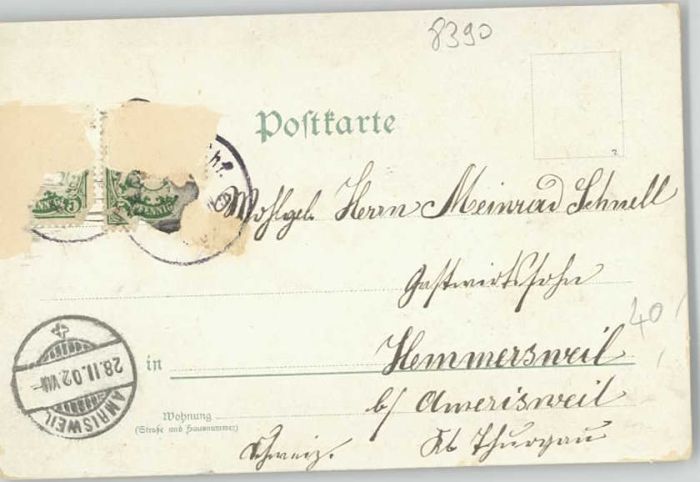 8390
Postkarte
Wohlgeb. Herrn Meinrad Schnell
Gastwirtssohn
40
in Hemmersweil
b/ Amerisweil
Wohnung
(Straße und Hausnummer)
Schweiz. Kt Thurgau
28.II.02.VII
AMRISWEIL
PFENNIG